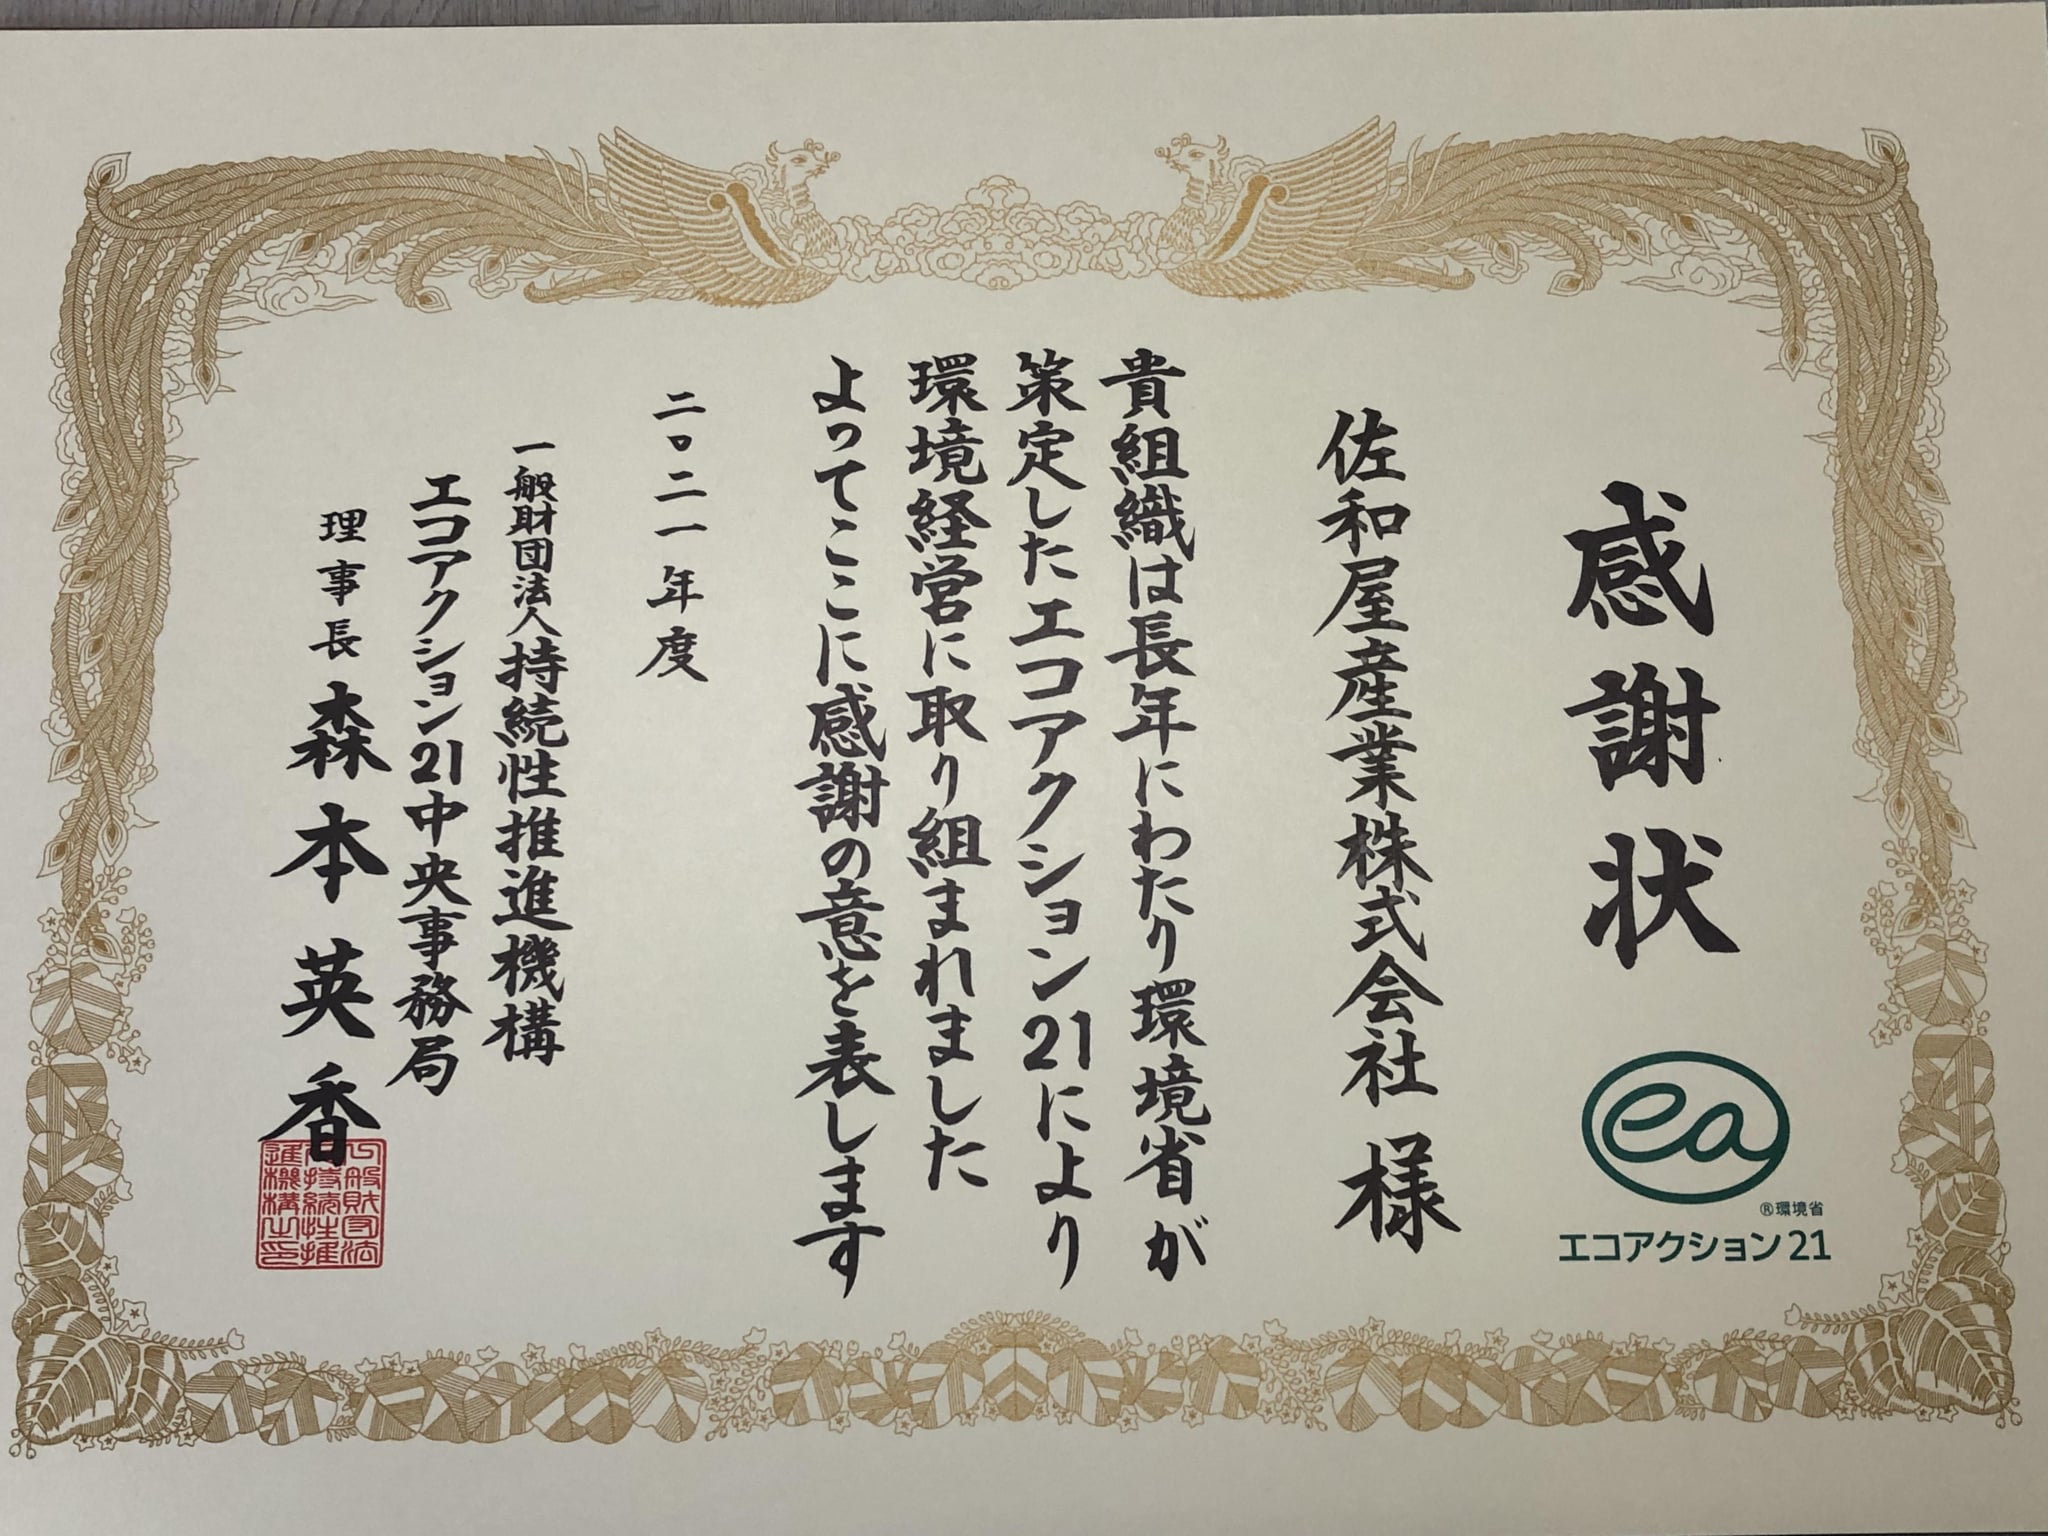 感謝状
佐和屋産業株式会社 様
貴組織は長年にわたり環境省が
策定したエコアクション21により
環境経営に取り組まれました
よってここに感謝の意を表します
二〇二一年度
一般財団法人持続性推進機構
エコアクション21中央事務局
理事長 森本英香
一般財団法
人持続性推
進機構之印
ea
®環境省
エコアクション21